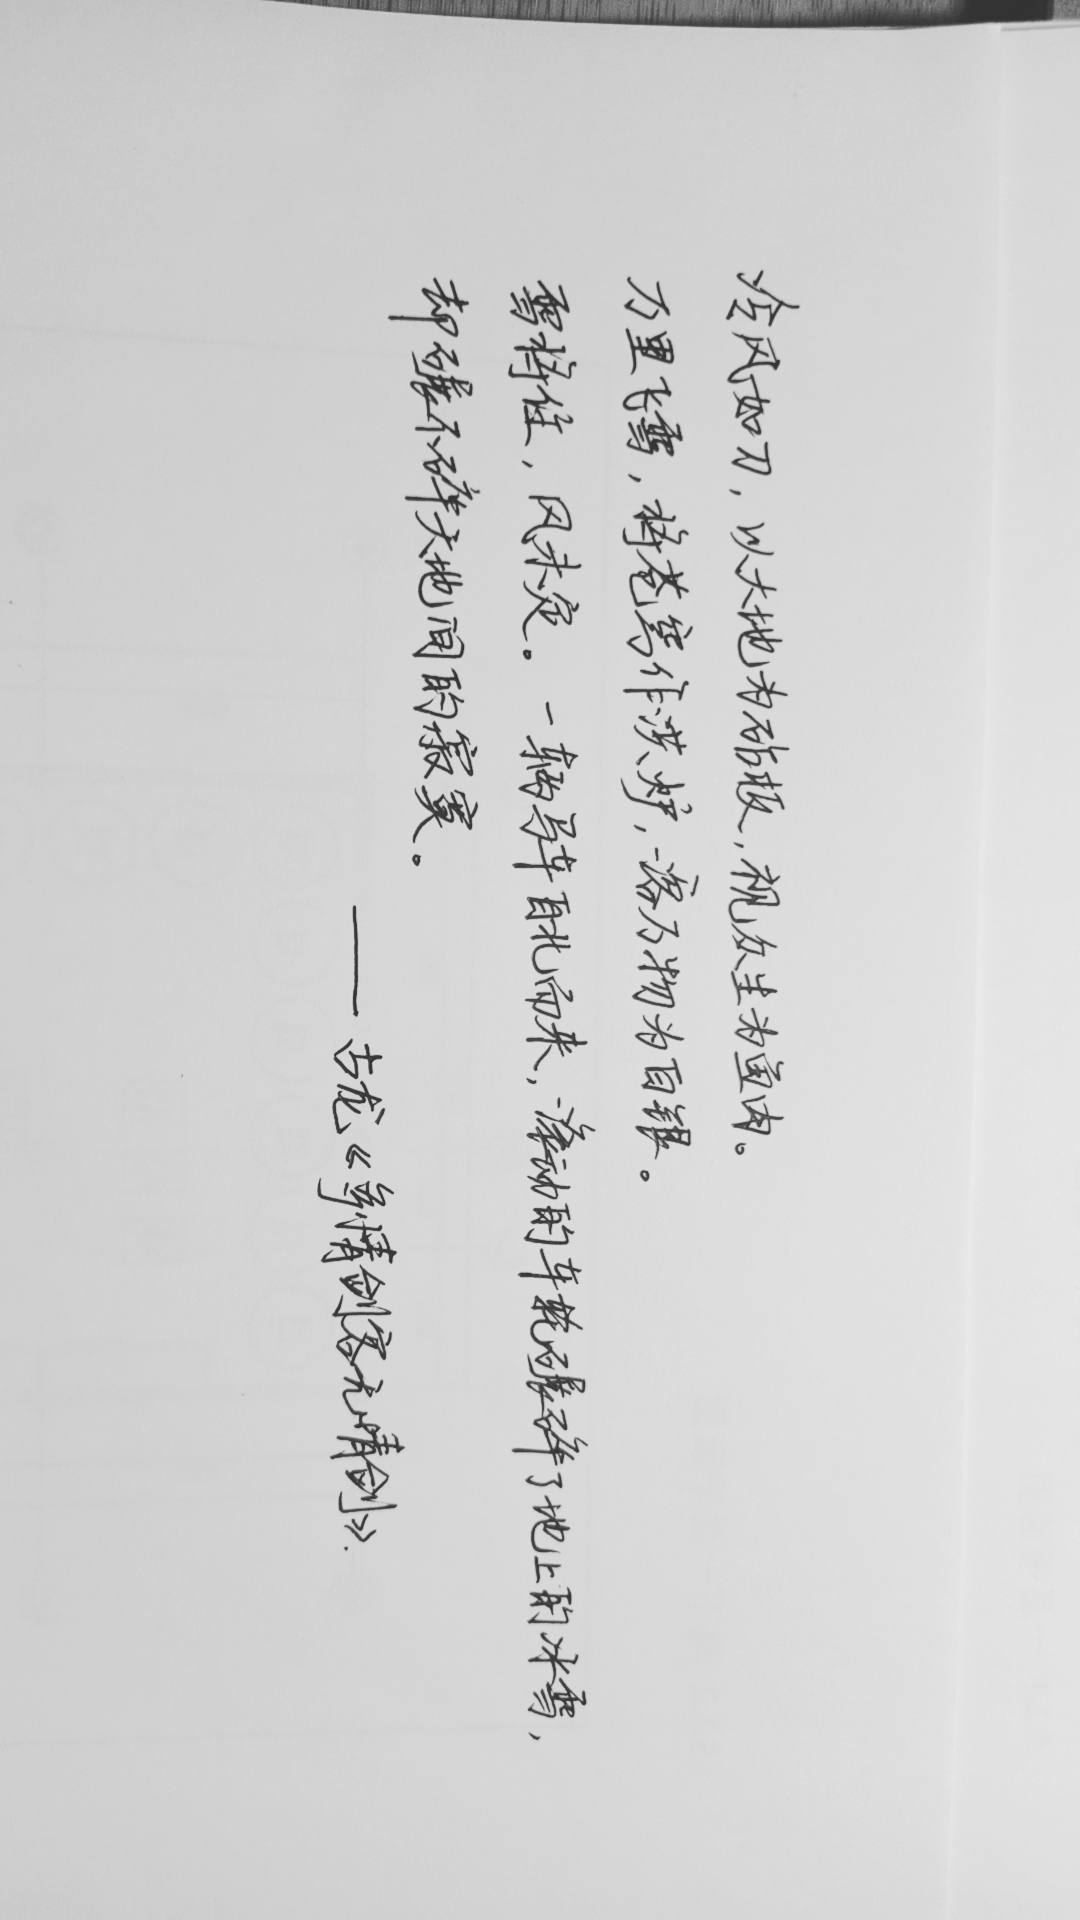 冷风如刀，以大地为砧板，视众生为鱼肉。
万里飞雪，将苍穹作洪炉，溶万物为白银。
雪将住，风未定。一辆马车自北而来，滚动的车轮碾碎了地上的冰雪，
却碾不碎天地间的寂寞。
——古龙《多情剑客无情剑》.